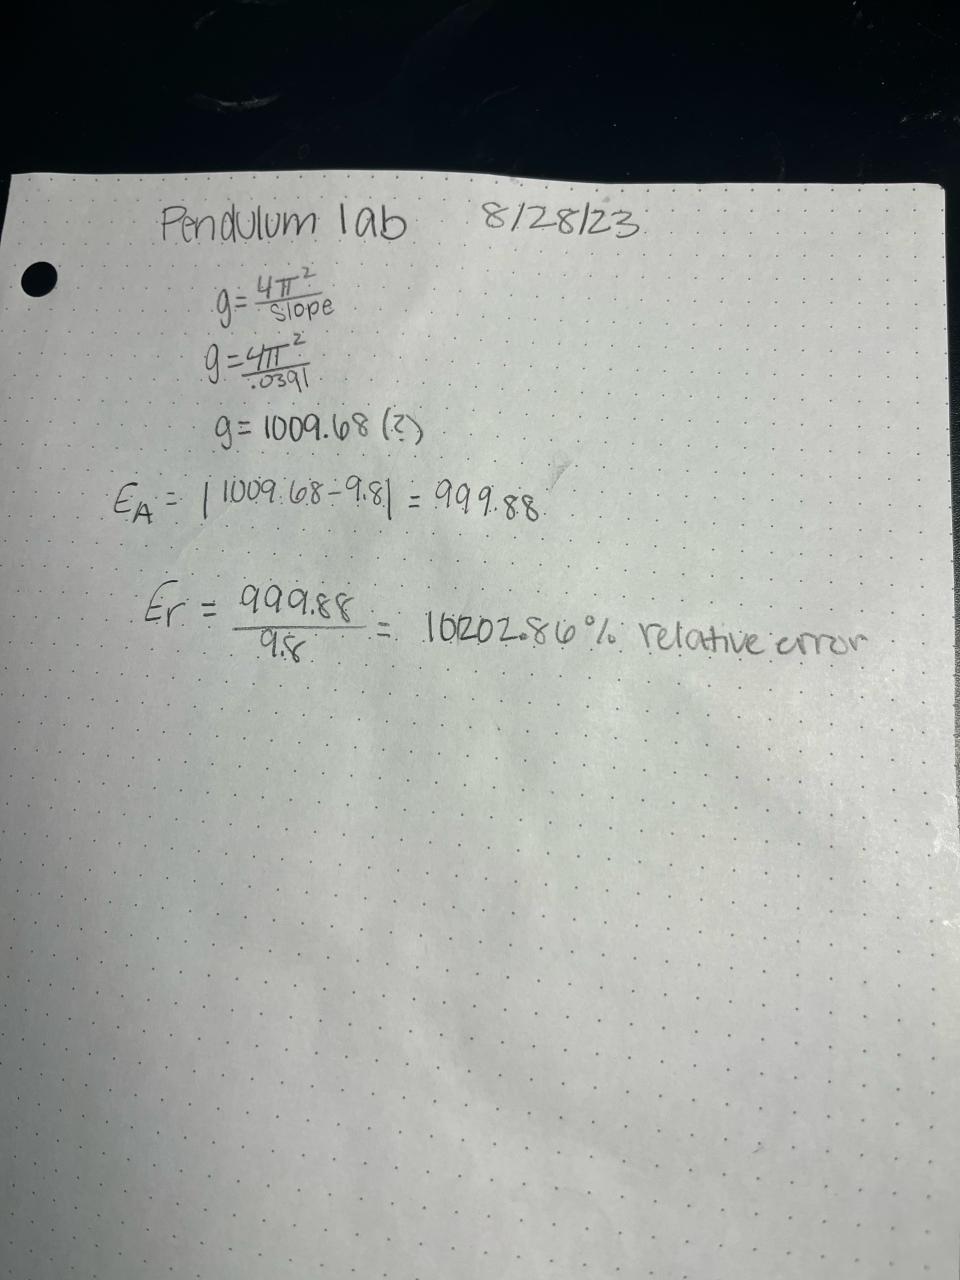 Pendulum lab 8/28/23
g = 4π²/slope
g = 4π²/.0391
g = 1009.68 (?)
E_A = |1009.68-9.8| = 999.88
Er = 999.88/9.8 = 10202.86% relative error